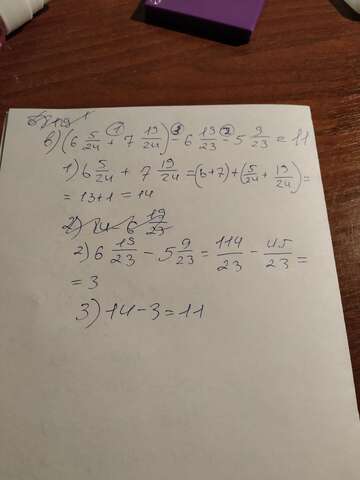 в) (6 5/24 + 7 19/24) - 6 19/23 - 5 9/23 = 11
1) 6 5/24 + 7 19/24 = (6+7) + (5/24 + 19/24) =
= 13+1 = 14
2) 14 - 6 19/23
2) 6 19/23 - 5 9/23 = 114/23 - 45/23 =
= 3
3) 14 - 3 = 11